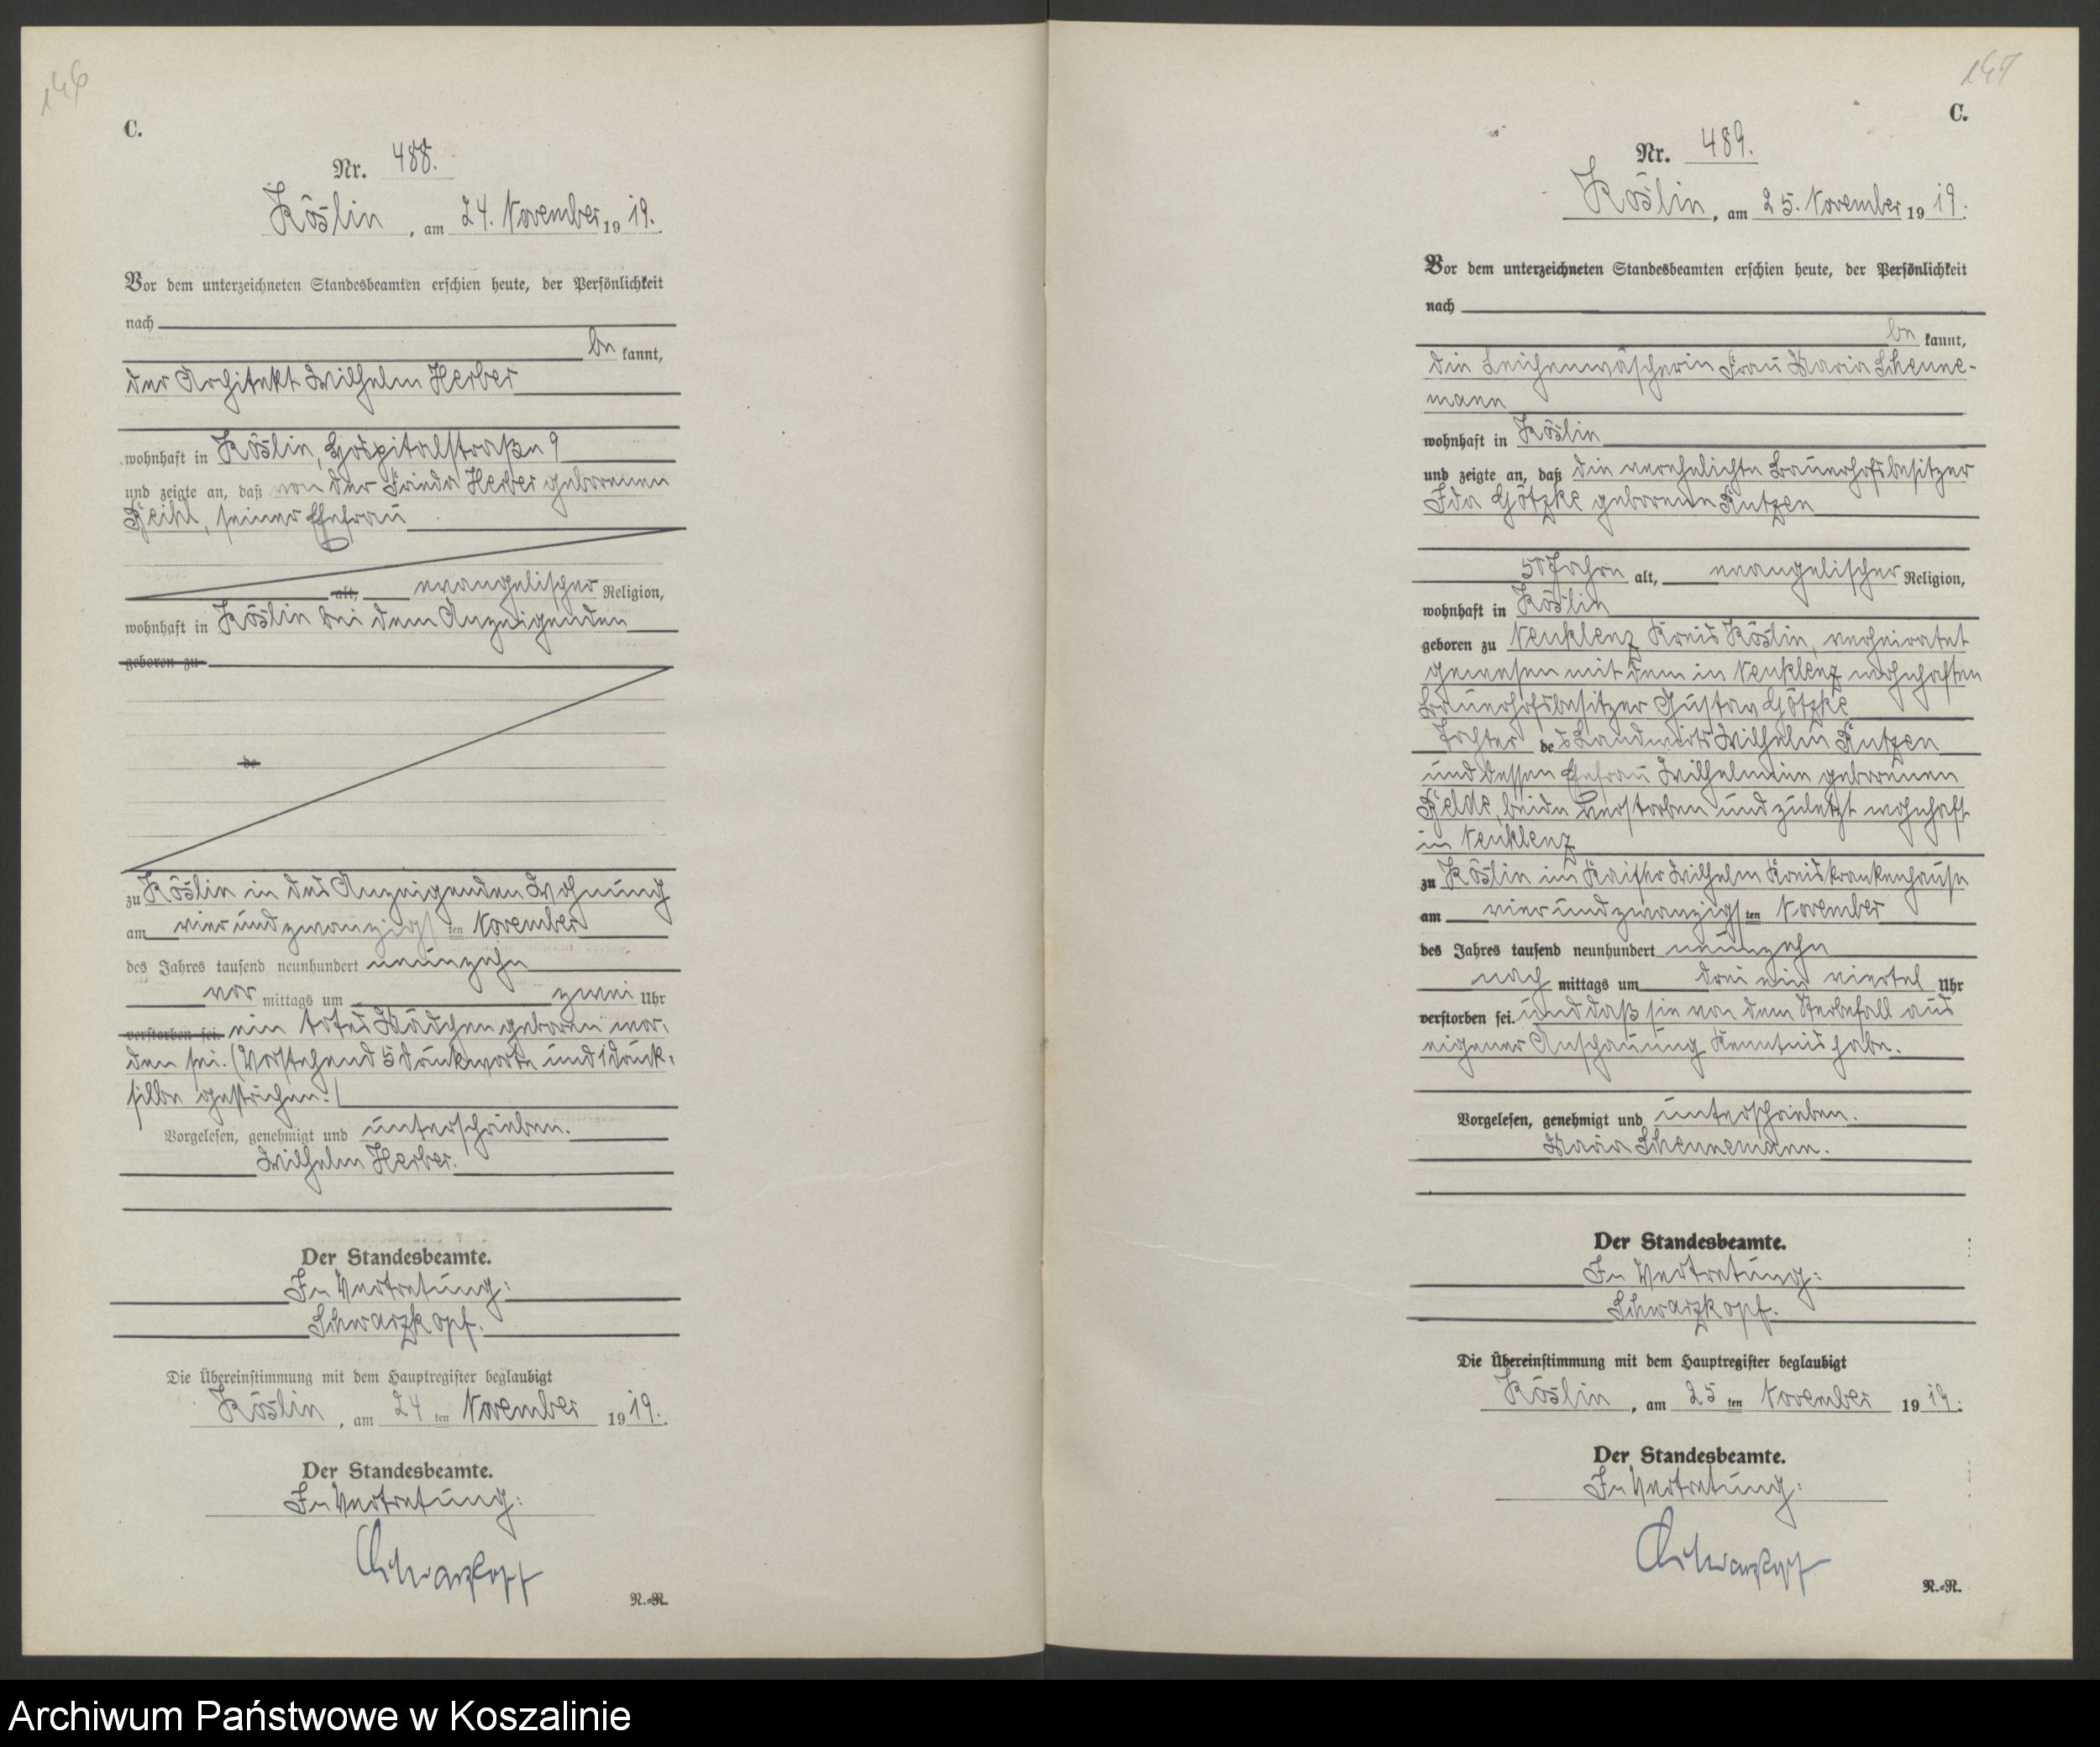 146
C.
Nr. 488.
Köslin, am 24. November 1919.
Vor dem unterzeichneten Standesbeamten erschien heute, der Persönlichkeit
nach
be kannt,
der Architekt Wilhelm Herber
wohnhaft in Köslin, Hospitalstraße 9
und zeigte an, daß von der Frieda Herber geborenen
seiner Ehefrau
alt, evangelischer Religion,
wohnhaft in Köslin bei dem Anzeigenden
geboren zu
de
zu Köslin in des Anzeigenden Wohnung
am vierundzwanzigsten November
des Jahres tausend neunhundert neunzehn
vor mittags um zwei Uhr
verstorben sei. ein totes Mädchen geboren wor-
den sei. (Vorstehend 5 Druckworte und 1 Druck-
silbe gestrichen.)
Vorgelesen, genehmigt und unterschrieben.
Wilhelm Herber.
Der Standesbeamte.
In Vertretung:
Schwarzkopf.
Die Übereinstimmung mit dem Hauptregister beglaubigt
Köslin, am 24 ten November 1919.
Der Standesbeamte.
In Vertretung:
Schwarzkopf
N.=R.
147
C.
Nr. 489.
Köslin, am 25. November 1919.
Vor dem unterzeichneten Standesbeamten erschien heute, der Persönlichkeit
nach
be kannt,
die Leichenwäscherin Frau Maria Schenne-
mann
wohnhaft in Köslin
und zeigte an, daß die verehelichte Bauerhofsbesitzer
Ida Götzke geborene Kutzen
Jahre alt, evangelischer Religion,
wohnhaft in Köslin
geboren zu Neuklenz Kreis Köslin, verheiratet
gewesen mit dem in Neuklenz wohnhaften
Bauerhofsbesitzer Gustav Götzke
Tochter des Landwirts Wilhelm Kutzen
und dessen Ehefrau Wilhelmine geborenen
beide verstorben und zuletzt wohnhaft
in Neuklenz
zu Köslin im Kaiser Wilhelm Kreiskrankenhause
am vierundzwanzigsten November
des Jahres tausend neunhundert neunzehn
nach mittags um drei ein viertel Uhr
verstorben sei. und daß sie von dem Sterbefall aus
eigener Anschauung Kenntnis habe.
Vorgelesen, genehmigt und unterschrieben.
Maria Schennemann.
Der Standesbeamte.
In Vertretung:
Schwarzkopf.
Die Übereinstimmung mit dem Hauptregister beglaubigt
Köslin, am 25 ten November 1919.
Der Standesbeamte.
In Vertretung:
Schwarzkopf
N.=R.
Archiwum Państwowe w Koszalinie